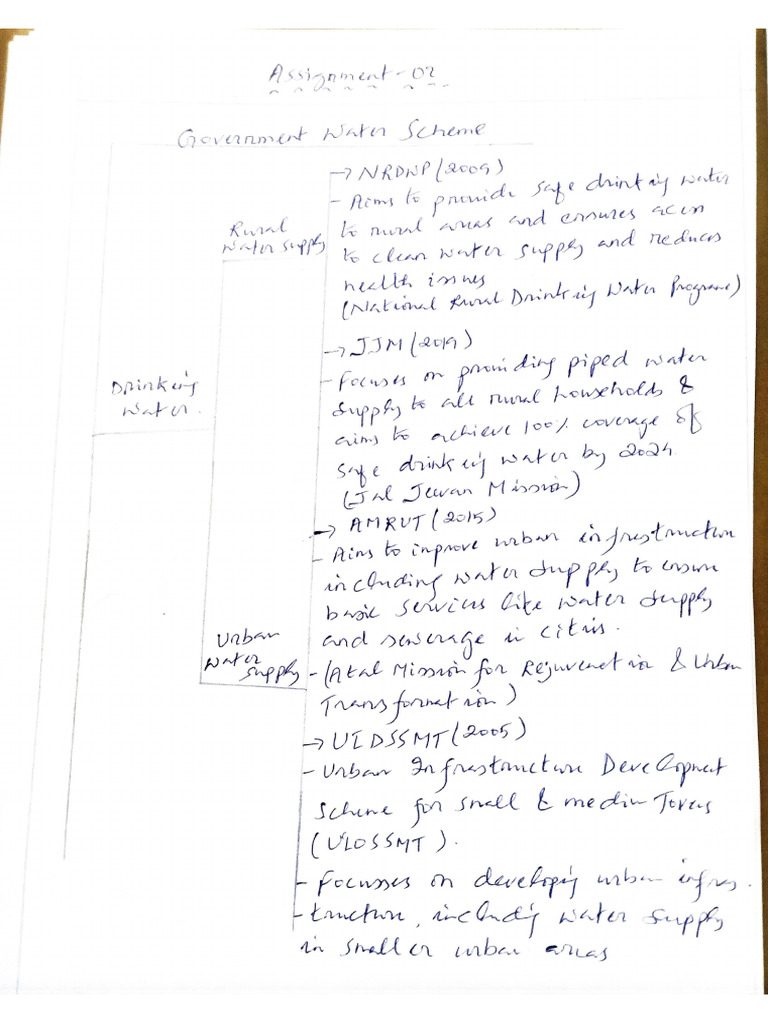 Assignment-02
Government Water Scheme
→ NRDWP (2009)
- Aims to provide safe drinking water
to rural areas and ensures acess
to clean water supply and reduces
health issues
(National Rural Drinking Water Programe)
Rural
Water Supply
→ JJM (2019)
- Focuses on providing piped water
supply to all rural households &
aims to achieve 100% coverage of
safe drinking water by 2024.
(Jal Jeevan Mission)
Drinking
Water.
→ AMRUT (2015)
- Aims to improve urban infrastructure
including water supply to ensure
basic services like water supply
and sewerage in cities.
- (Atal Mission for Rejuvenation & Urban
Transformation)
Urban
Water
Supply
→ UIDSSMT (2005)
- Urban Infrastructure Development
Scheme for small & medium Towns
(UIDSSMT).
- Focusses on developing urban infras
- tructure, including water supply
in smaller urban areas